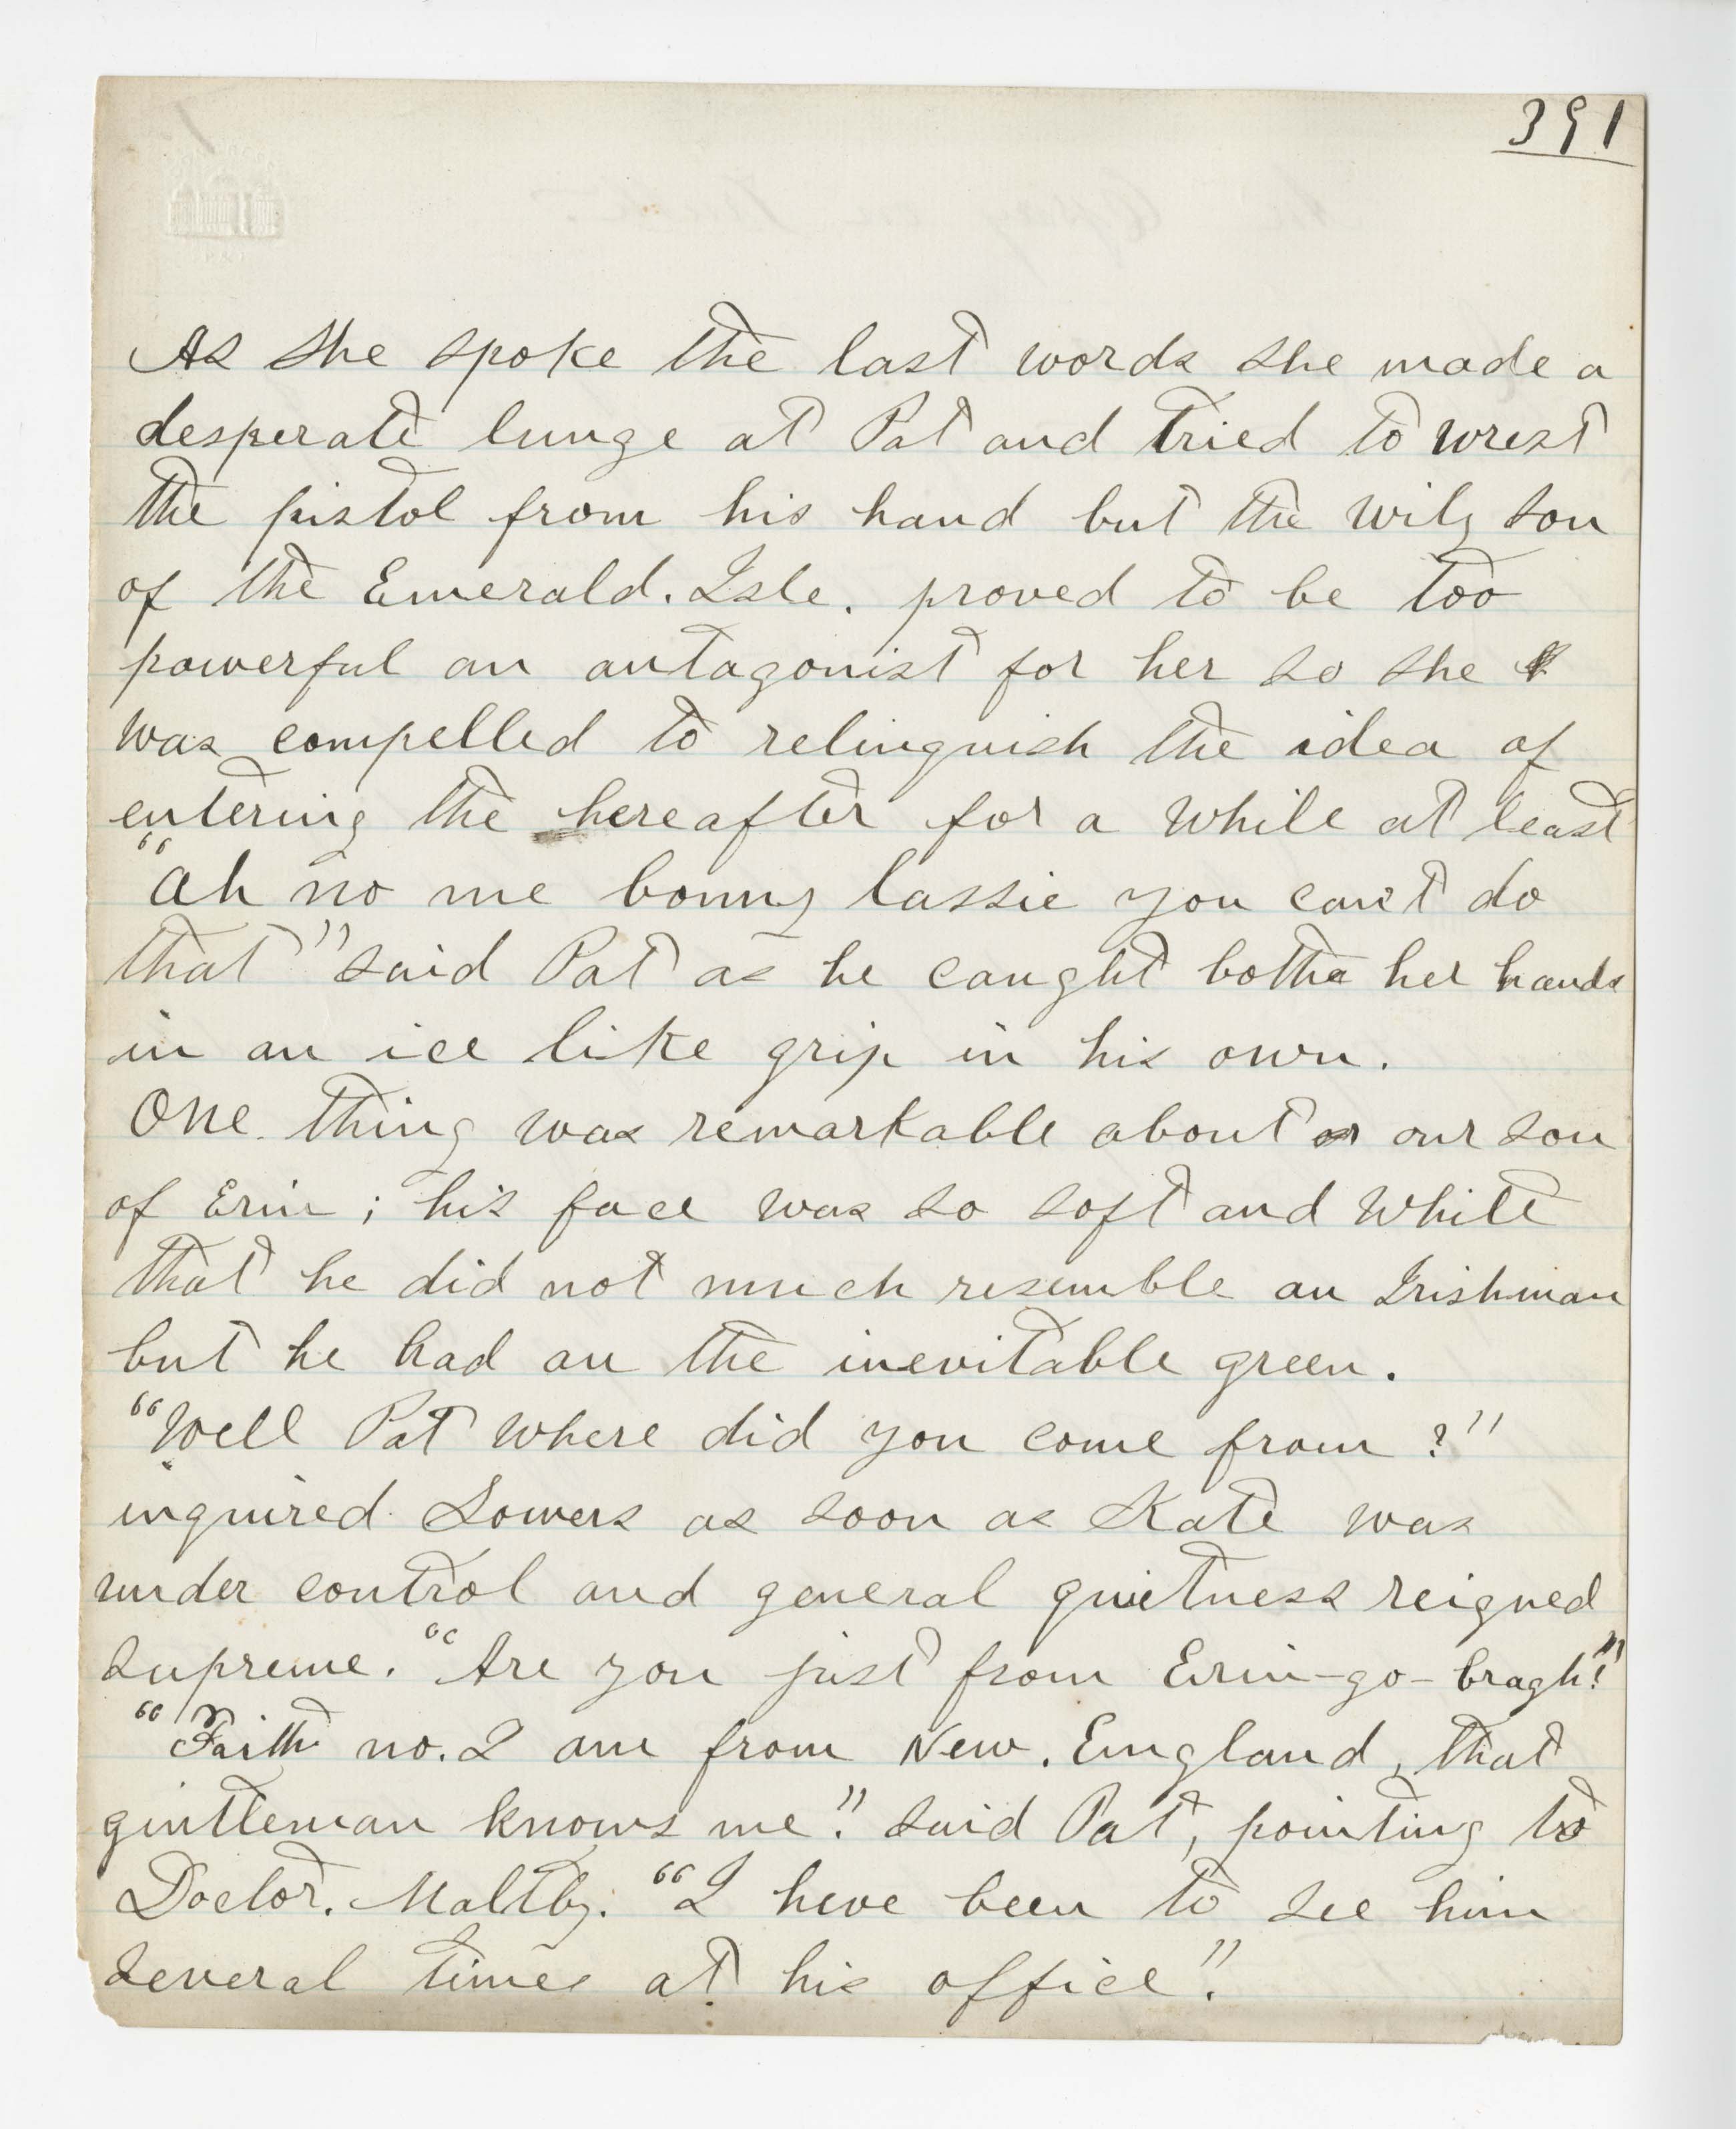 391
As she spoke the last words she made a
desperate lunge at Pat and tried to wrest
the pistol from his hand but the wily son
of the Emerald. Isle. proved to be too
powerful an antagonist for her so she
was compelled to relinquish the idea of
entering the hereafter for a while at least
"Ah no me bonny lassie you can't do
that" said Pat as he caught both her hands
in an ice like grip in his own.
One thing was remarkable about our son
of Erin; his face was so soft and white
that he did not much resemble an Irishman
but he had on the inevitable green.
"Well Pat where did you come from?"
inquired Sowers as soon as Kate was
under control and general quietness reigned
supreme. "Are you just from Erin-go-bragh?"
"Faith no. I am from New. England, that
gintleman knows me". said Pat, pointing to
Doctor. Maltby. "I heve been to see him
several times at his office".